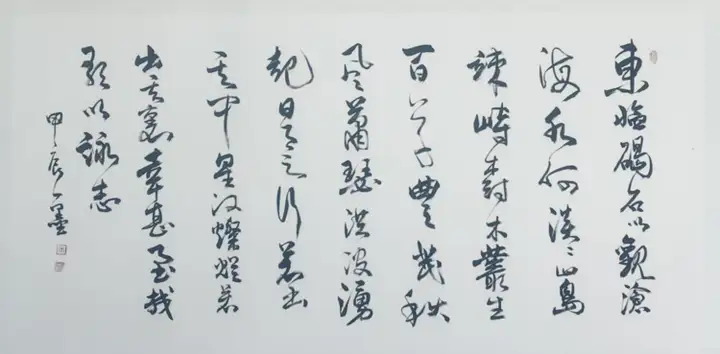 東臨碣石以觀滄
海水何淡〻山島
竦峙樹木叢生
百草豐茂秋
風蕭瑟洪波湧
起日月之行若出
其中星漢燦爛若
出其裏幸甚至哉
歌以詠志
甲辰一墨